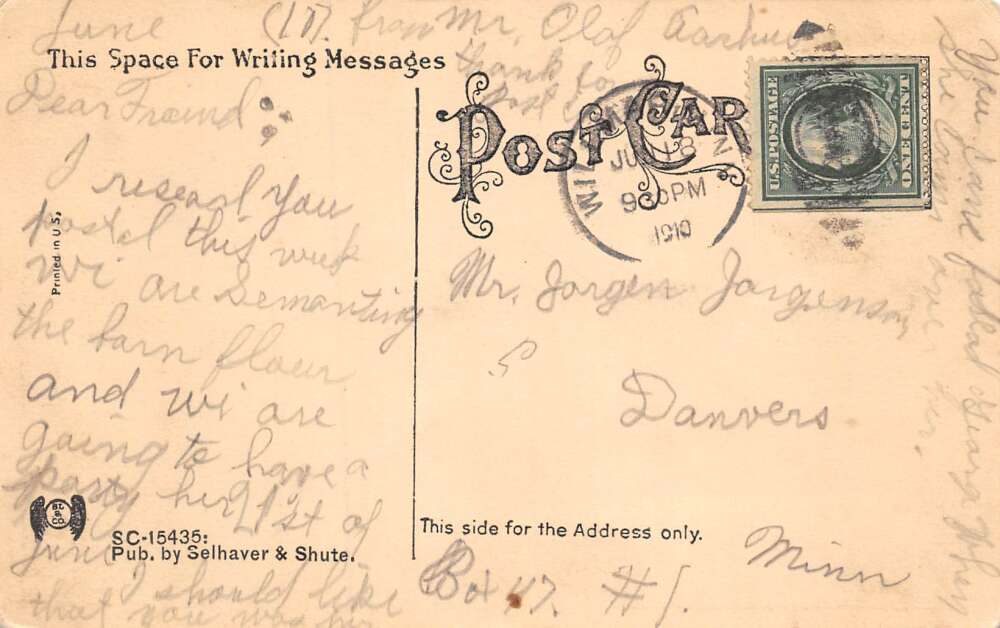 June (17). from Mr. Olof
This Space For Writing Messages
thank for
Post
Dear Freind :
I reseavd you
postel this week
wi are semanting
the barn flour
and wi are
going to have a
party her 21st of
June
I should like
that you was her
Printed in U.S.
ST. & CO.
SC-15435:
Pub. by Selhaver & Shute.
POST CARD
JUN 18
930PM
1910
N
U.S. POSTAGE
ONE CENT
Mr. Jorgen Jorgenson,
Danvers
Minn
This side for the Address only.
Box 47. # 1.